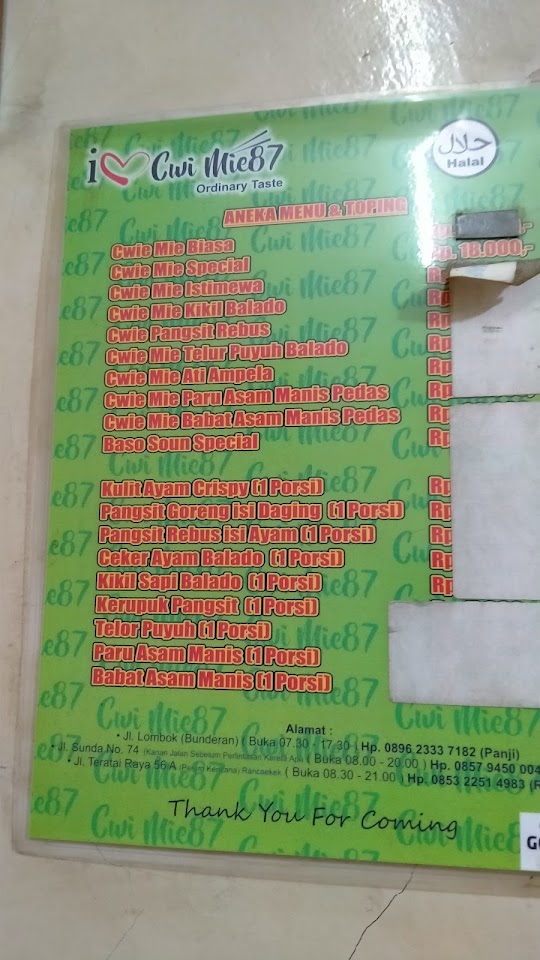 i Cwi Mie87
Ordinary Taste
حلال
Halal
ANEKA MENU & TOPING
Cwie Mie Biasa
Cwie Mie Special Rp. 18.000,-
Cwie Mie Istimewa Rp
Cwie Mie Kikil Balado Rp
Cwie Pangsit Rebus Rp
Cwie Mie Telur Puyuh Balado Rp
Cwie Mie Ati Ampela Rp
Cwie Mie Paru Asam Manis Pedas Rp
Cwie Mie Babat Asam Manis Pedas Rp
Baso Soun Special Rp
Kulit Ayam Crispy (1 Porsi) Rp
Pangsit Goreng isi Daging (1 Porsi) Rp
Pangsit Rebus isi Ayam (1 Porsi) Rp
Ceker Ayam Balado (1 Porsi) Rp
Kikil Sapi Balado (1 Porsi) Rp
Kerupuk Pangsit (1 Porsi)
Telor Puyuh (1 Porsi)
Paru Asam Manis (1 Porsi)
Babat Asam Manis (1 Porsi)
Alamat :
• Jl. Lombok (Bunderan) ( Buka 07.30 - 17.30 ) Hp. 0896 2333 7182 (Panji)
• Jl. Sunda No. 74 (Kanan Jalan Sebelum Perlintasan Kereta Api) ( Buka 08.00 - 20.00 ) Hp. 0857 9450 004
• Jl. Teratai Raya 56 A (Perum Kencana) Rancaekek ( Buka 08.30 - 21.00 ) Hp. 0853 2251 4983 (R
Thank You For Coming